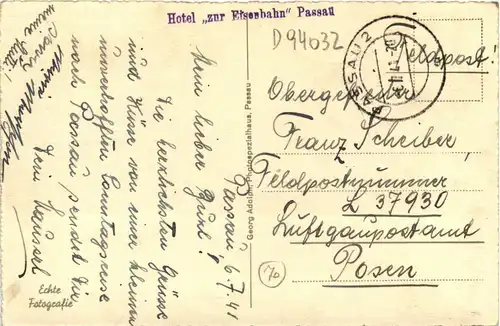 Hotel „zur Eisenbahn“ Passau
D94032
Passau, 6.7.41
Mein lieber Bubi!
Die herzlichsten Grüsse
und Küsse von einer kleinen
unverhofften Sonntagsreise
nach Passau sendet Dir
Dein
meine
PASSAU 2
Feldpost!
Obergefreiter
Franz Scheiber
Feldpostnummer
L 37930
Luftgaupostamt
Posen
70
Georg Adolf Photospezialhaus, Passau
Echte
Fotografie